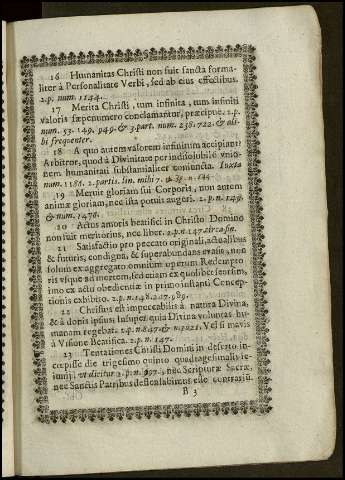 16 Humanitas Christi non fuit sancta forma-
liter à Personalitate Verbi, sed ab eius effectibus.
2.p. num. 1144.
17 Merita Christi, tum infinita, tum infiniti
valoris sæpenumero conclamantur, præcipuè. 2.p.
num. 53. 149. 949. & 3.part. num. 238. 722. & ali-
bi frequenter.
18 A quo autem valorem infinitum accipiant?
Arbitror, quod à Divinitate per indissolubilē vnio-
nem humanitati substantialiter coniuncta. Iuxta
num. 1186. 2. partis. lin. mihi 7. &
19 Meruit gloriam sui Corporis, non autem
animæ gloriam, nec ista potuit augeri. 2.p. n. 149.
& num. 1478.
20 Actus amoris beatifici in Christo Domino
non fuit meritorius, nec liber. 2.p. n. 147. circa fin.
21 Satisfactio pro peccato originali, actualibus
& futuris, condigna, & superabundans evasit, non
solum ex aggregato omnium operum Redempto
ris vsque ad mortem, sed etiam ex quolibet seorsim,
imo ex actu obedientiæ in primo instanti Concep-
tionis exhibito. 2.p. n. 148. 217. 989.
22 Christus est impeccabilis à natura Divina,
& à donis ipsius. Insuper quia Divina voluntas hu-
manam regebat. 2.p. n. 847. & n. 921. Vel si mavis
à Visione Beatifica. 2.p. n. 147.
23 Tentationes Christi Domini in deserto in-
cœpisse die trigesimo quinto quadragesimalis ie-
iunij, vt dicitur 2.p. n. 997. nec Scripturæ Sacræ,
nec Sanctis Patribus
esse contrarium.
B 3